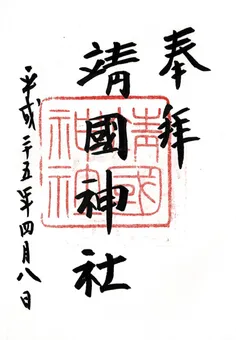 奉拝
靖國神社
靖國
神社
平成二十五年四月八日